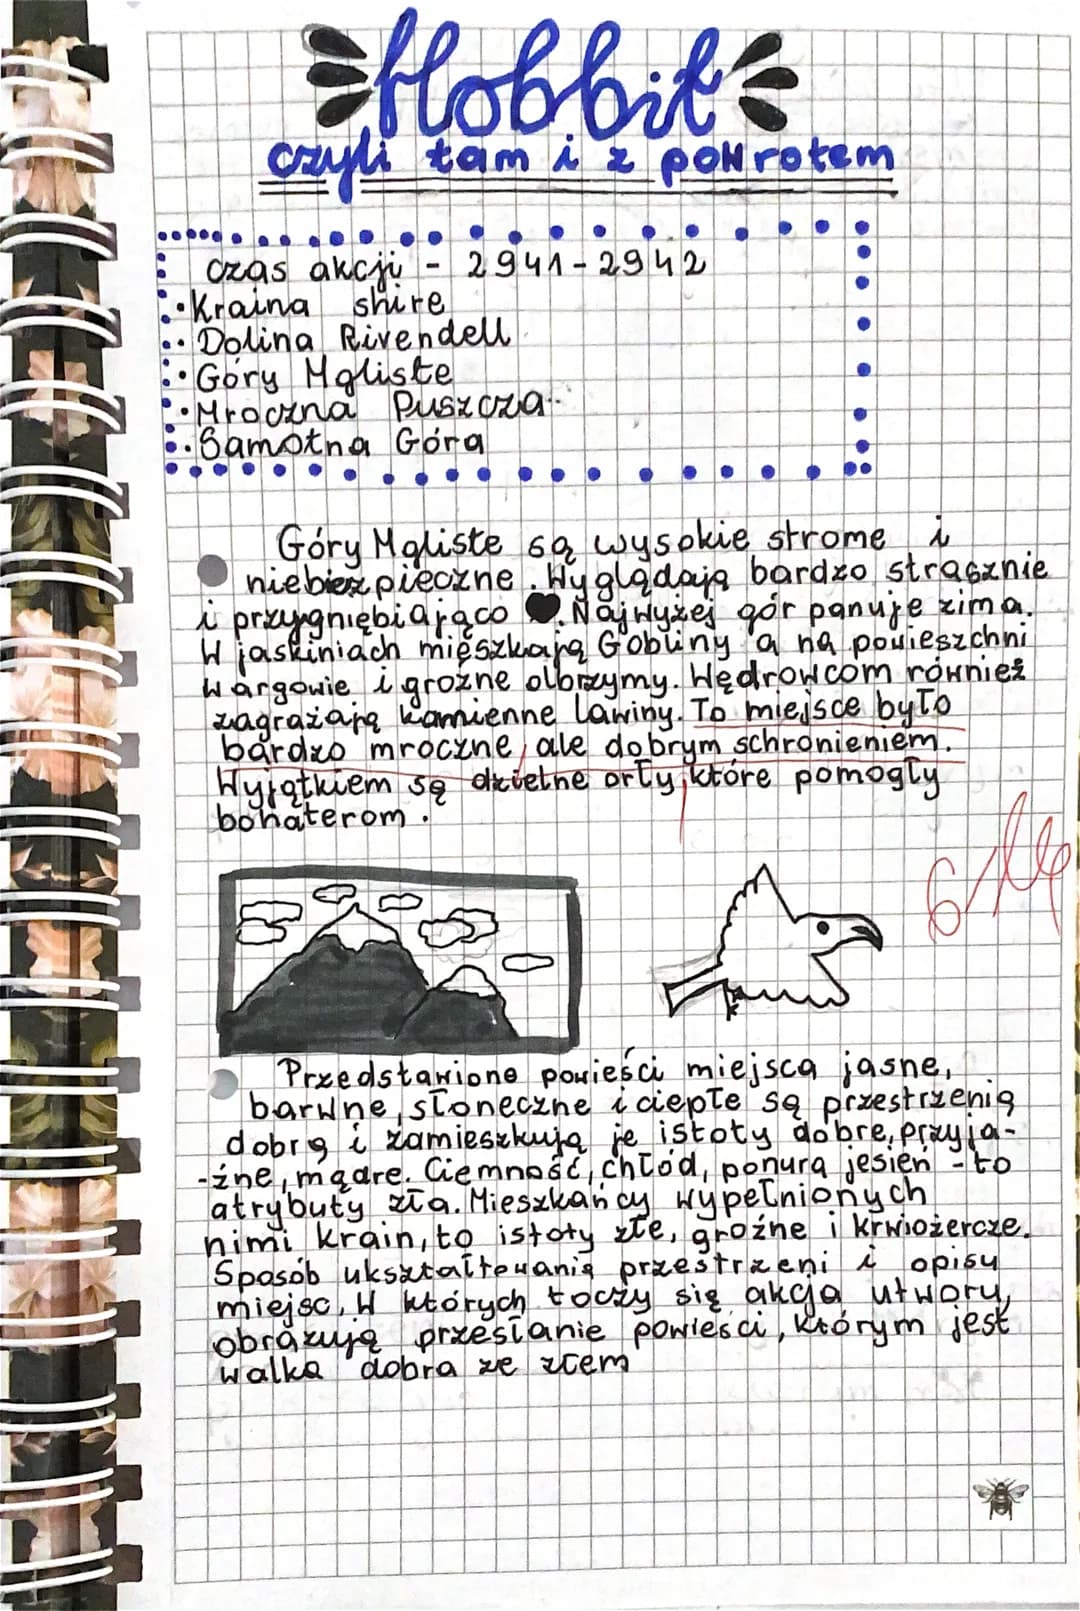 Hobbit
czyli tam i z powrotem
czas akcji - 2941-2942
• Kraina shire
• Dolina Rivendell
• Góry Mgliste
• Mroczna Puszcza
• Samotna Góra
Góry Mgliste są wysokie, strome i
niebiezpieczne. Wyglądają bardzo strasznie
i przygnębiająco ♥. Najwyżej gór panuje zima.
W jaskiniach mieszkają Gobliny a na powieszchni
wargowie i groźne olbrzymy. Wędrowcom również
zagrażają kamienne lawiny. To miejsce było
bardzo mroczne, ale dobrym schronieniem.
Wyjątkiem są dzielne orły, które pomogły
bohaterom.
6
Przedstawione powieści miejsca jasne,
barwne, słoneczne i ciepłe są przestrzenią
dobrą i zamieszkują je istoty dobre, przyja-
-źne, mądre. Ciemność, chłód, ponura jesień - to
atrybuty zła. Mieszkańcy wypełnionych
nimi krain, to istoty złe, groźne i krwiożercze.
Sposób ukształtowania przestrzeni i opisy
miejsc, w których toczy się akcja utworu,
obrazują przesłanie powieści, którym jest
walka dobra ze złem